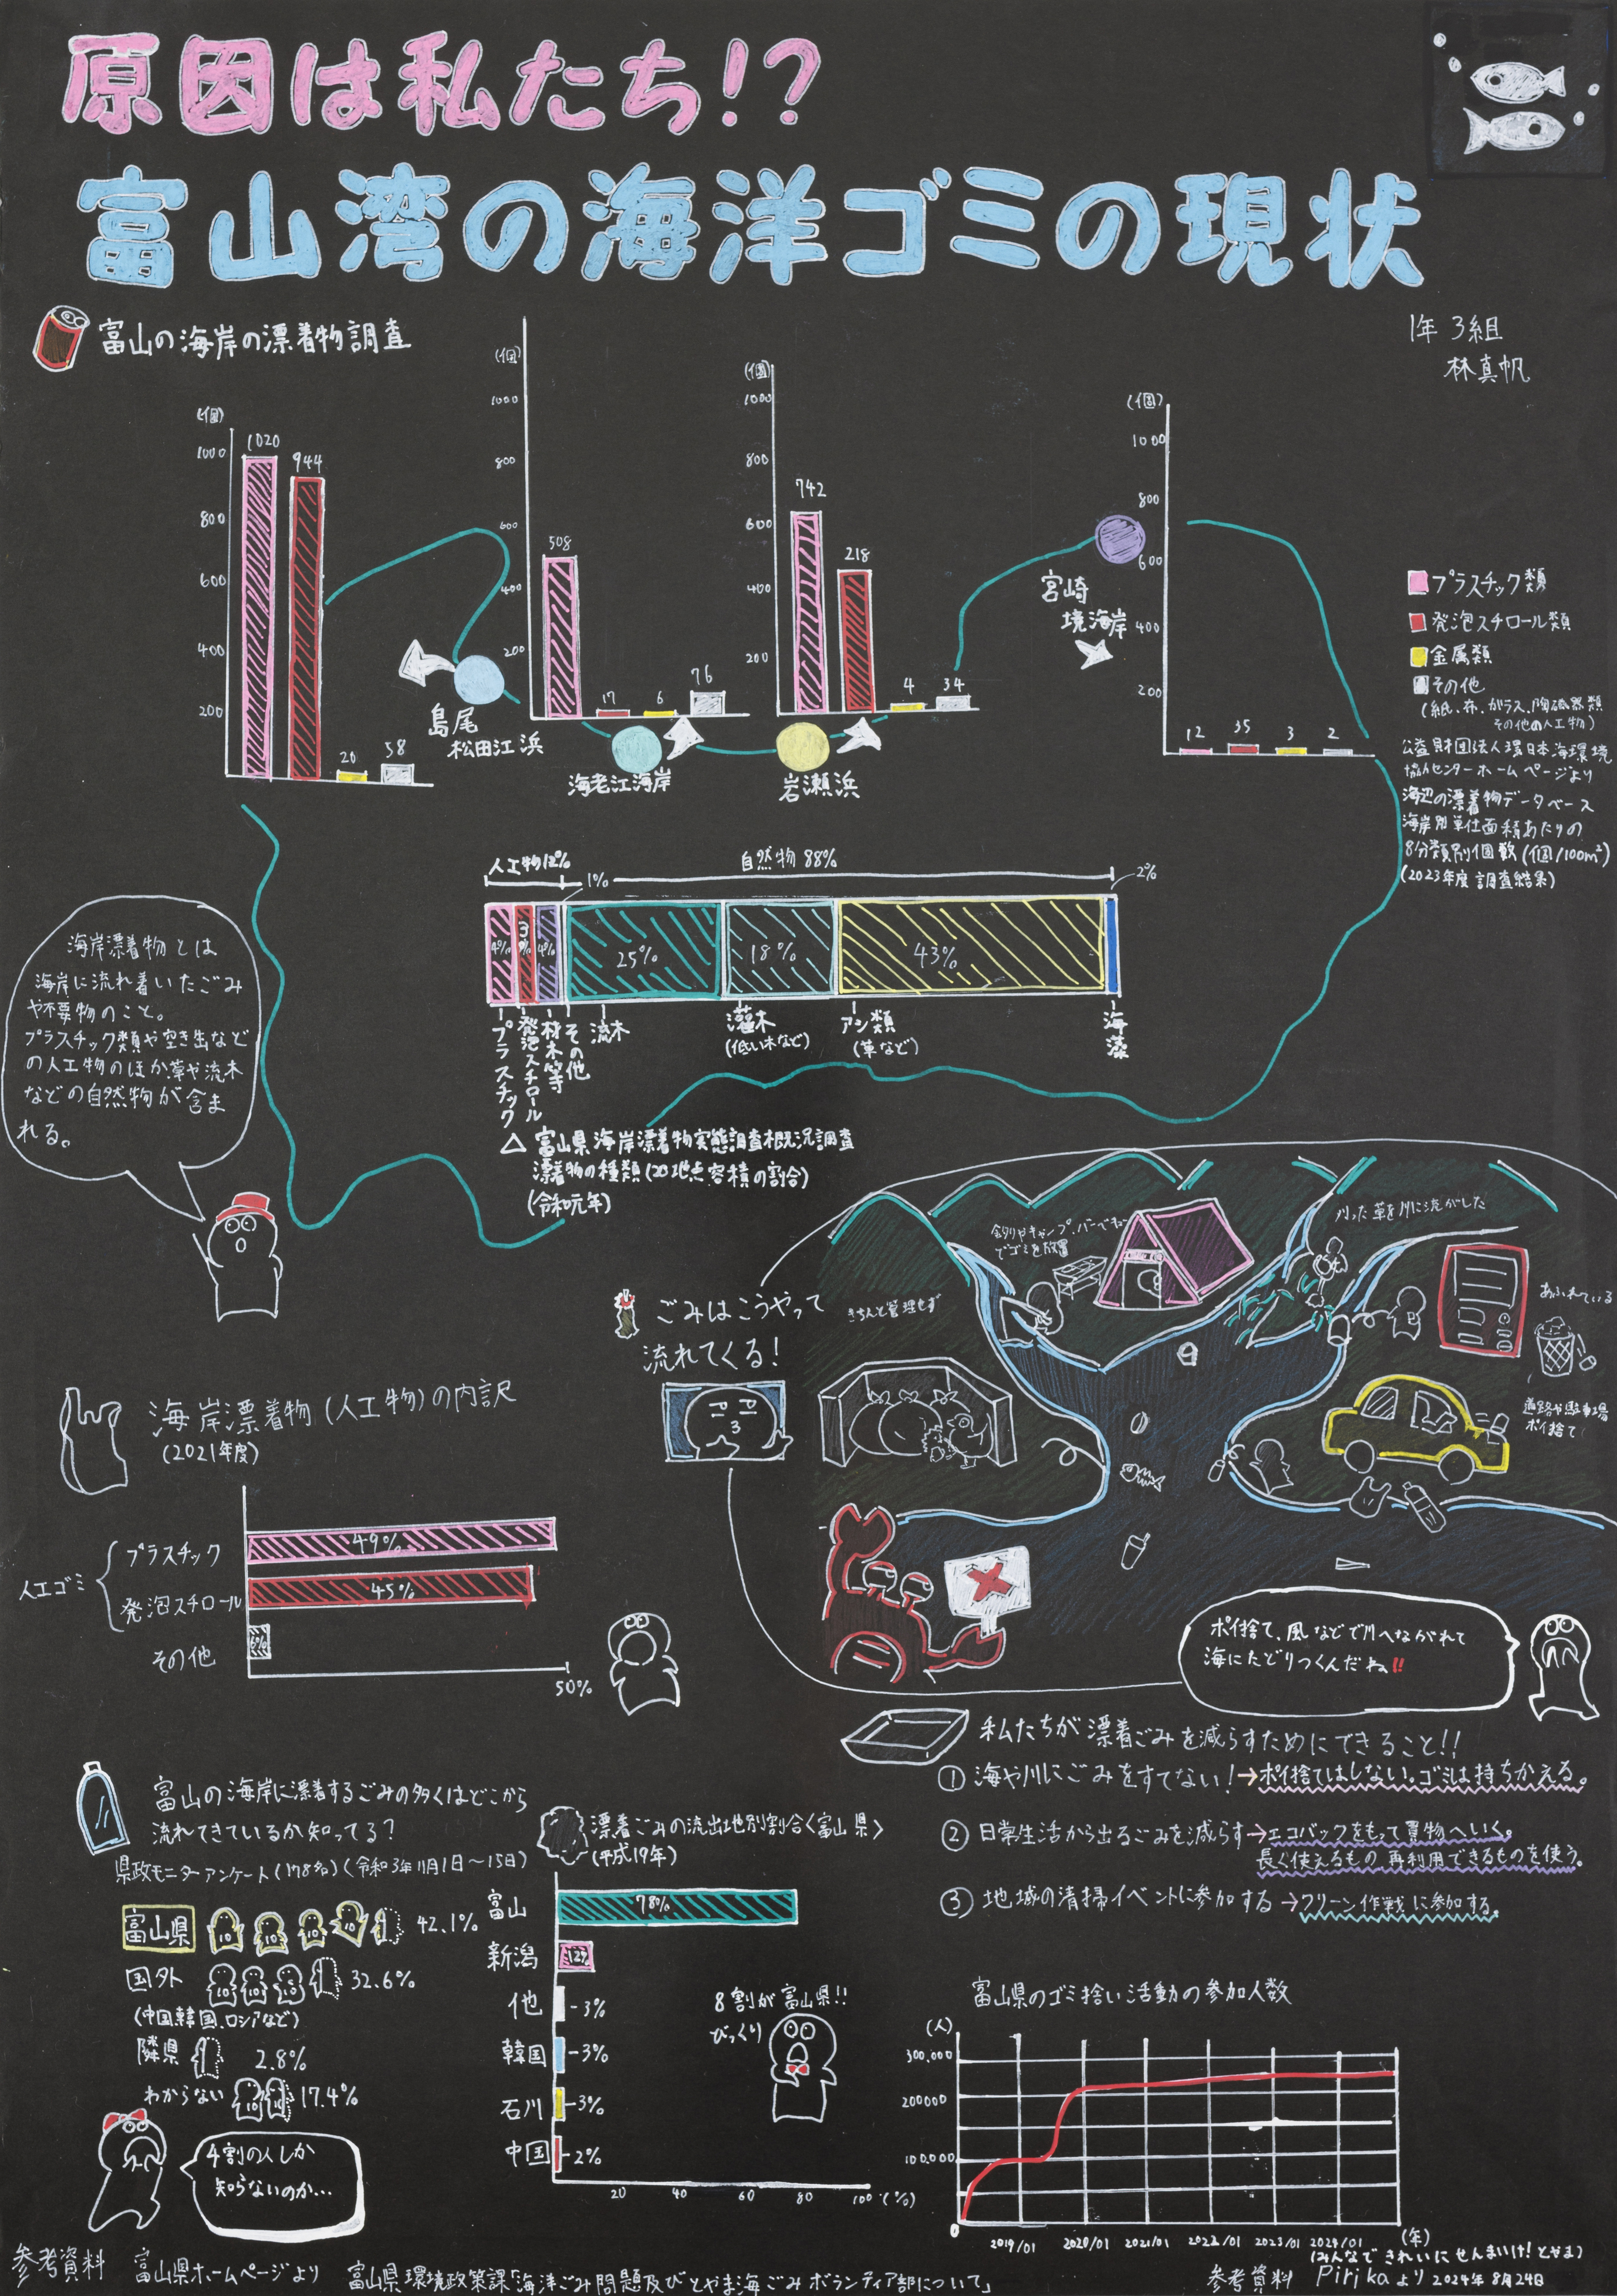 原因は私たち!?
富山湾の海洋ゴミの現状
1年 3組
林真帆
富山の海岸の漂着物調査
(個)
1000
800
600
400
200
1020
944
20
58
島尾
松田江浜
(個)
1000
800
600
400
200
508
17
6
76
海老江海岸
(個)
1000
800
600
400
200
742
218
4
34
岩瀬浜
(個)
1000
800
600
400
200
12
35
3
2
宮崎
境海岸
プラスチック類
発泡スチロール類
金属類
その他
(紙、布、ガラス、陶磁器類
その他の人工物)
公益財団法人環日本海環境
協力センターホームページより
海辺の漂着物データベース
海岸別単位面積あたりの
8分類別個数(個/100m²)
(2023年度調査結果)
人工物12%
自然物88%
1%
2%
4%
3%
4%
25%
18%
43%
プラスチック
発泡スチロール
材木等
その他
流木
灌木
(低い木など)
アシ類
(草など)
海藻
△ 富山県海岸漂着物実態調査概況調査
漂着物の種類(20地点容積の割合)
(令和元年)
海岸漂着物とは
海岸に流れ着いたごみ
や不要物のこと。
プラスチック類や空き缶など
の人工物のほか草や流木
などの自然物が含ま
れる。
ごみはこうやって
流れてくる!
釣りやキャンプ、バーベキュー
でゴミを放置
刈った草を川に流がした
きちんと管理せず
あふれている
道路や駐車場
ポイ捨て
ポイ捨て、風などで川へながれて
海にたどりつくんだね!!
海岸漂着物(人工物)の内訳
(2021年度)
人工ゴミ
プラスチック
49%
発泡スチロール
45%
その他
6%
50%
私たちが漂着ごみを減らすためにできること!!
① 海や川にごみをすてない!→ポイ捨てはしない。ゴミは持ちかえる。
② 日常生活から出るごみを減らす→エコバックをもって買物へいく。
長く使えるもの、再利用できるものを使う。
③ 地域の清掃イベントに参加する→クリーン作戦に参加する。
富山の海岸に漂着するごみの多くはどこから
流れてきているか知ってる?
県政モニターアンケート(178名)(令和3年11月1日~15日)
富山県
10
10
10
10
42.1%
国外
10
10
10
32.6%
(中国、韓国、ロシアなど)
隣県
2.8%
わからない
10
17.4%
4割の人しか
知らないのか...
漂着ごみの流出地別割合<富山県>
(平成19年)
富山
78%
新潟
12%
他
3%
韓国
3%
石川
3%
中国
2%
20
40
60
80
100
(%)
8割が富山県!!
びっくり
富山県のゴミ拾い活動の参加人数
(人)
300,000
200000
100,000
0
2019/01
2020/01
2021/01
2022/01
2023/01
2024/01
(年)
(みんなできれいにせんまいけ!とやま)
参考資料 Pirikaより 2024年8月24日
参考資料 富山県ホームページより 富山県環境政策課「海洋ごみ問題及びとやま海ごみボランティア部について」